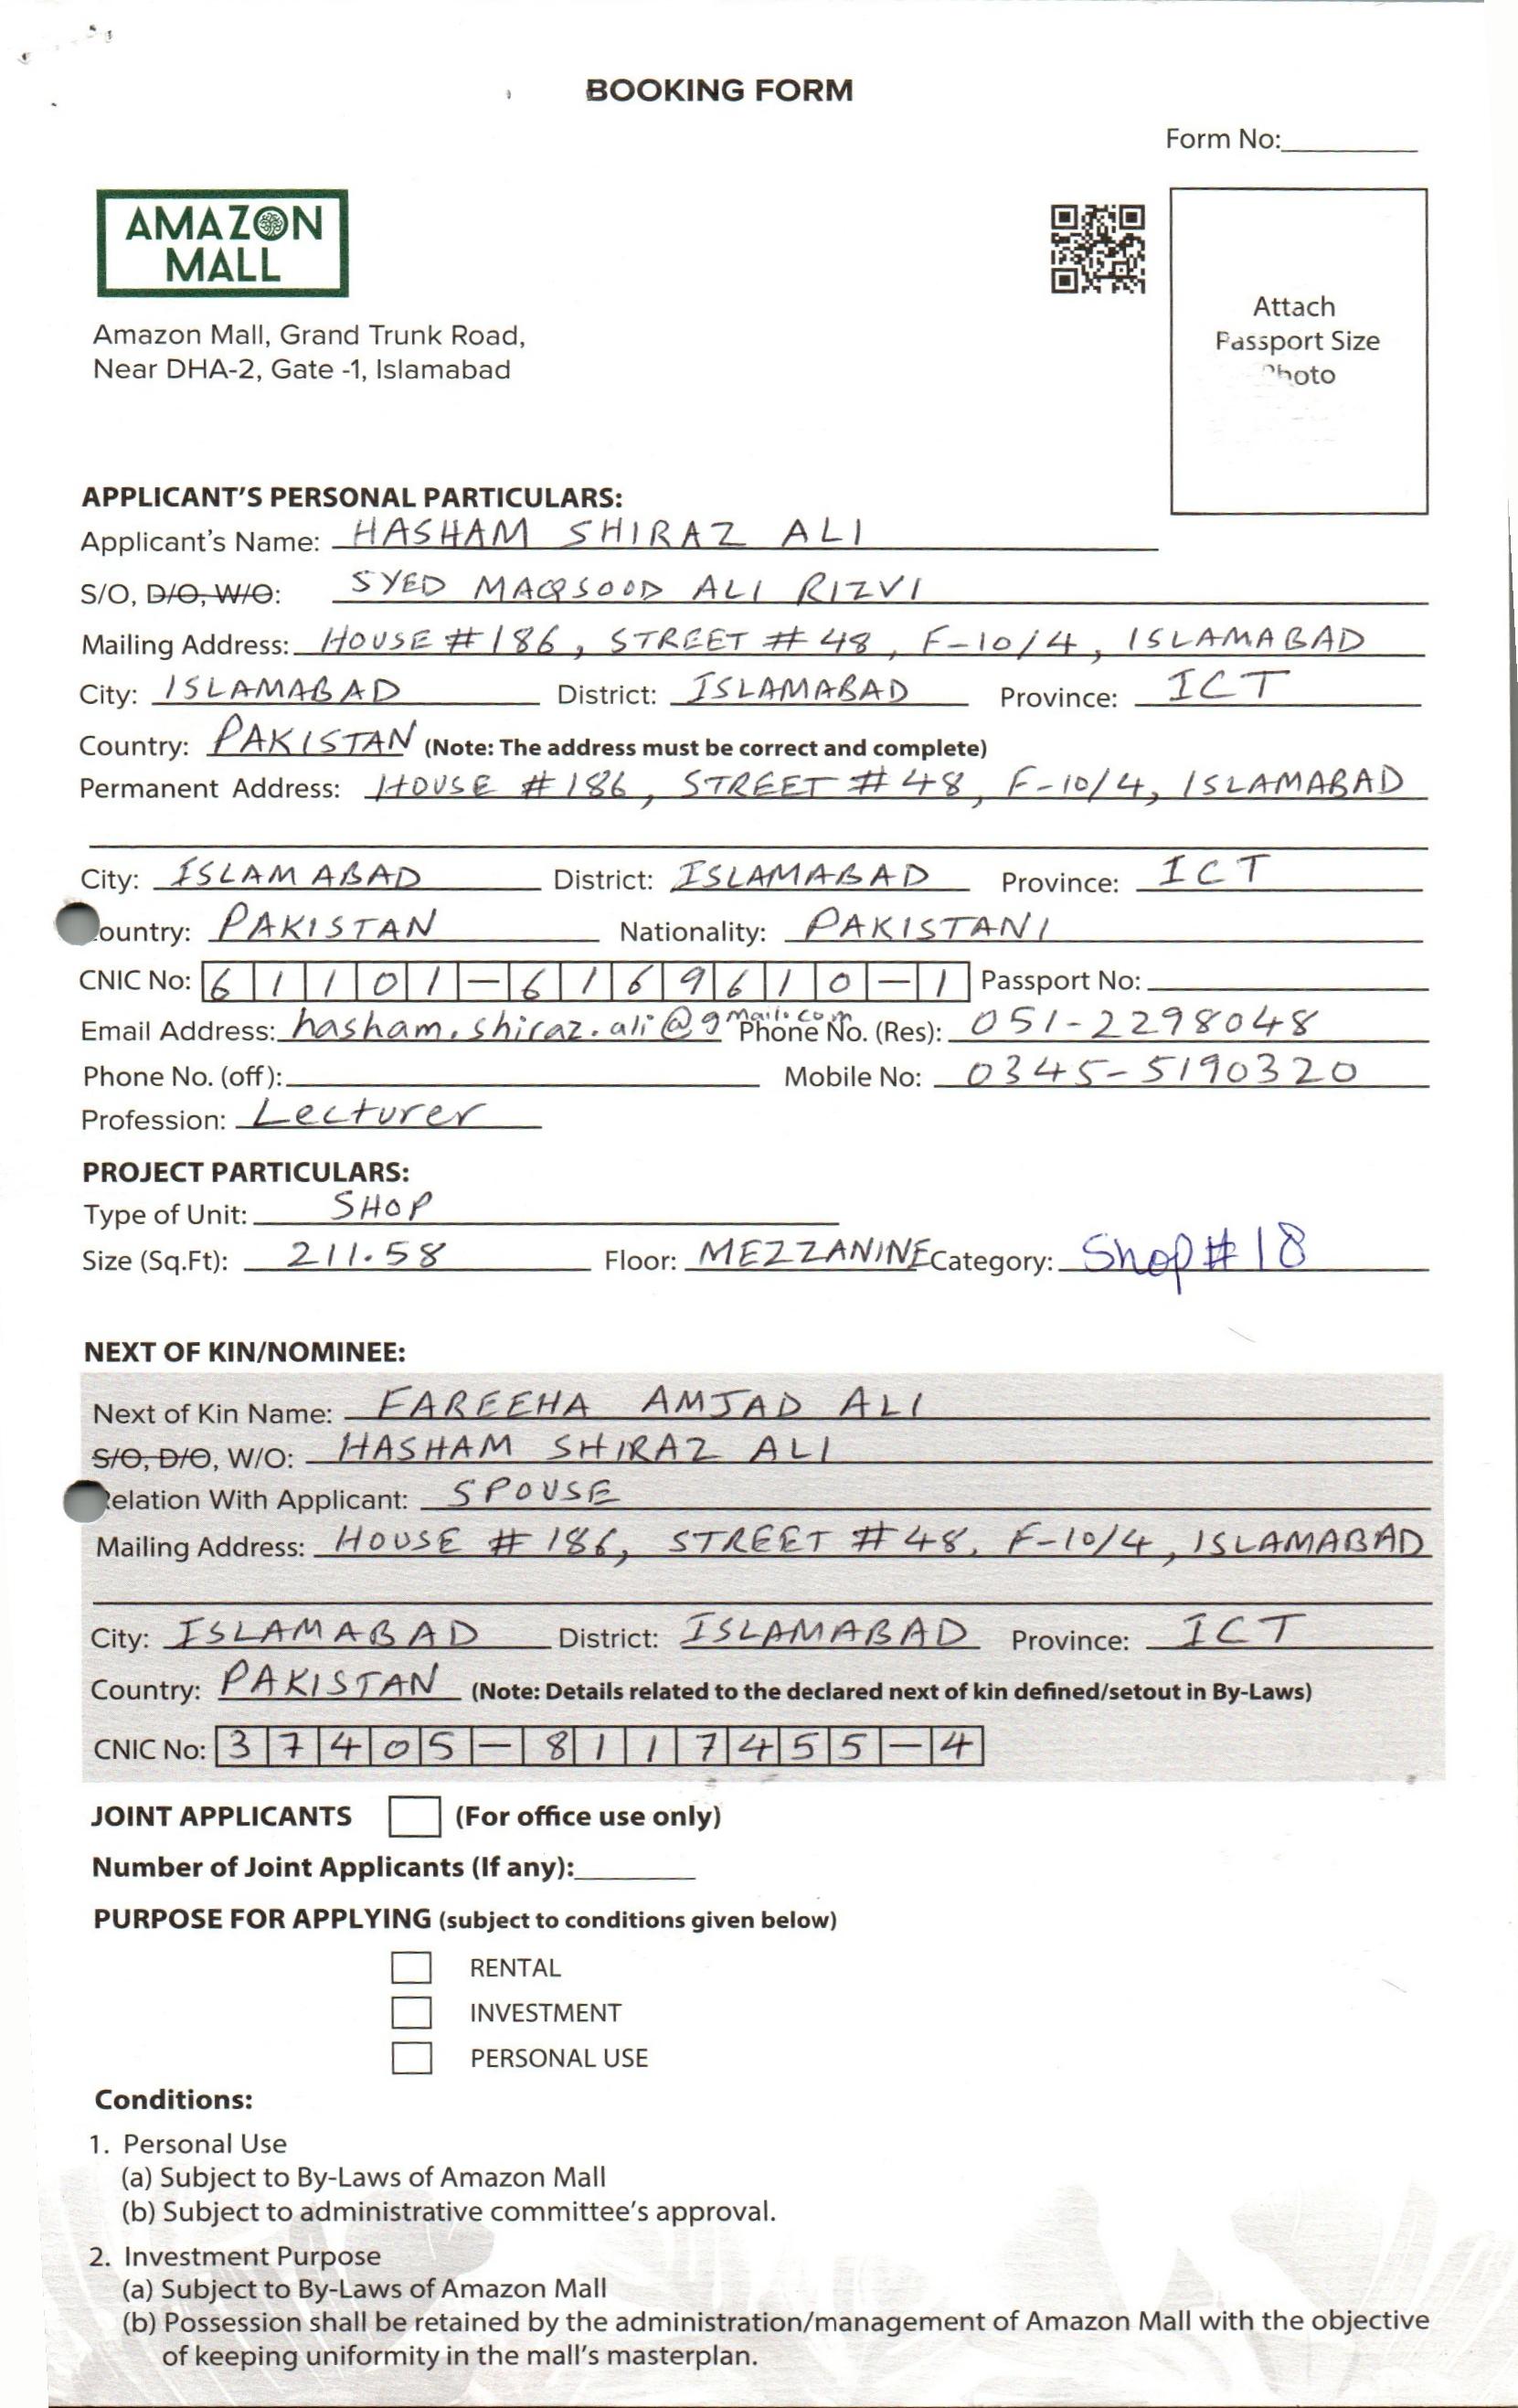 BOOKING FORM
Form No:
AMAZON
MALL
Attach
Passport Size
Photo
Amazon Mall, Grand Trunk Road,
Near DHA-2, Gate -1, Islamabad
APPLICANT'S PERSONAL PARTICULARS:
Applicant's Name: HASHAM SHIRAZ ALI
S/O, D/O, W/O: SYED MAQSOOD ALI RIZVI
Mailing Address: HOUSE #186, STREET #48, F-10/4, ISLAMABAD
City: ISLAMABAD District: ISLAMABAD Province: ICT
Country: PAKISTAN (Note: The address must be correct and complete)
Permanent Address: HOUSE #186, STREET #48, F-10/4, ISLAMABAD
City: ISLAMABAD District: ISLAMABAD Province: ICT
ountry: PAKISTAN Nationality: PAKISTANI
CNIC No: 61101-6169610-1 Passport No:
Email Address: hasham.shiraz.ali@gmail.com Phone No. (Res): 051-2298048
Phone No. (off): Mobile No: 0345-5190320
Profession: Lecturer
PROJECT PARTICULARS:
Type of Unit: SHOP
Size (Sq.Ft): 211.58 Floor: MEZZANINE Category: Shop #18
NEXT OF KIN/NOMINEE:
Next of Kin Name: FAREEHA AMJAD ALI
S/O, D/O, W/O: HASHAM SHIRAZ ALI
elation With Applicant: SPOUSE
Mailing Address: HOUSE #186, STREET #48, F-10/4, ISLAMABAD
City: ISLAMABAD District: ISLAMABAD Province: ICT
Country: PAKISTAN (Note: Details related to the declared next of kin defined/setout in By-Laws)
CNIC No: 37405-8117455-4
JOINT APPLICANTS (For office use only)
Number of Joint Applicants (If any):
PURPOSE FOR APPLYING (subject to conditions given below)
RENTAL
INVESTMENT
PERSONAL USE
Conditions:
1. Personal Use
(a) Subject to By-Laws of Amazon Mall
(b) Subject to administrative committee's approval.
2. Investment Purpose
(a) Subject to By-Laws of Amazon Mall
(b) Possession shall be retained by the administration/management of Amazon Mall with the objective
of keeping uniformity in the mall's masterplan.